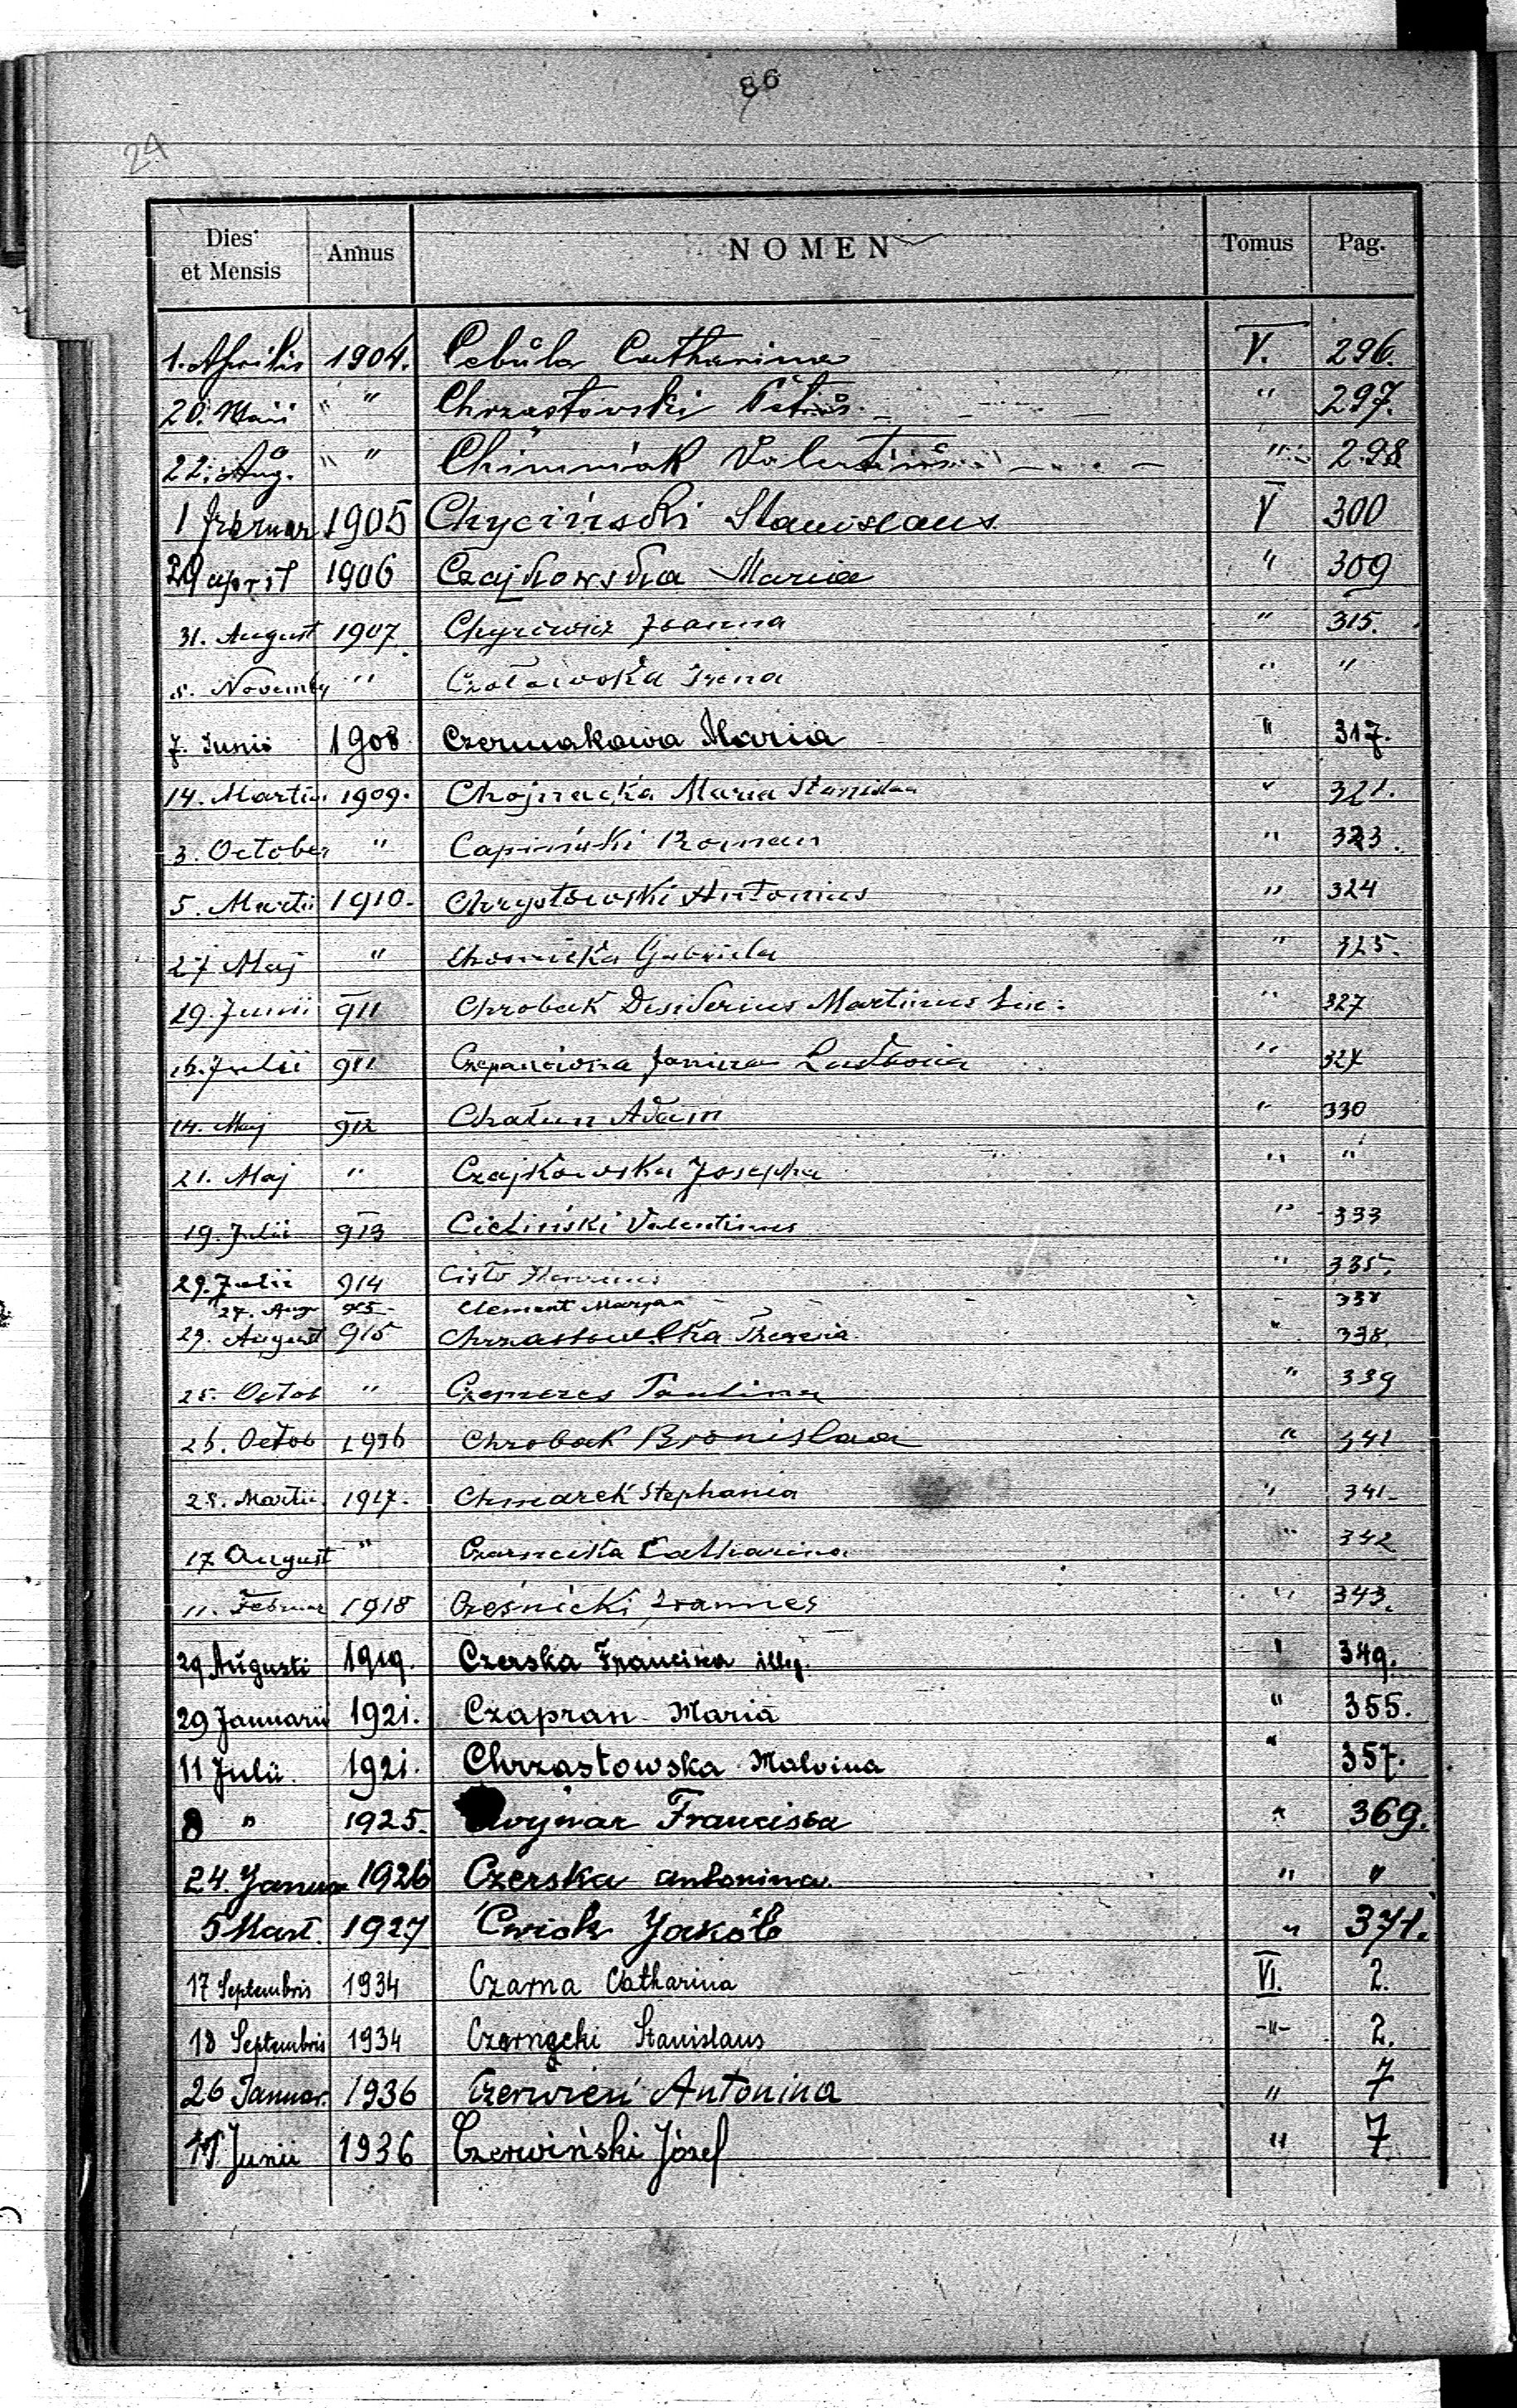 86
24
Dies et Mensis Annus NOMEN Tomus Pag.
1. Aprilis 1904. Cebula Catharina V. 296.
20. Maii " " Chrząstowski Petrus " 297.
22. Aug. " " Chimniak Valentinus " 298
1 februar 1905 Chyciński Stanislaus V 300
29 april 1906 Czajkowska Maria " 309
31. August 1907. Joanna " 315.
5. November " Irena " "
7. Junii 1908 Czermakowa Maria " 317.
14. Martii 1909. Chojnacka Maria Stanislaa " 321.
3. October " Capiński Roman " 323.
5. Martii 1910. Antonius " 324
27 Maj " Gabriela " 325.
29. Junii 911 Chrobak Desiderius Martinus " 327
16. Julii 911 Janina Ludovica " 327
14. Maj 912 Chatun Adam " 330
21. Maj " Czajkowska Josepha " "
19. Julii 913 Cieliński Valentinus " 333
29. Julii 914 Cisło " 335.
27. Aug 915 Clement Marjan - 338
29. August 915 Chrzastowska Theresia " 338.
25. Octob " Czemeres Paulina " 339
26. Octob 1916 Chrobak Bronislaa " 341
28. Martii 1917. Chmarek Stephania " 341.
17 August " Czarnecka Catharina " 342
11. Februar 1918 Cześnicki Joannes " 343.
29 Augusti 1919. Czerska Francisca illeg. " 349.
29 Januarii 1921. Czapran Maria " 355.
11 Julii. 1921. Chrzastowska Malvina " 357.
8 " 1925. Francisca " 369.
24. Januar 1926 Czerska antonina. " "
5 Mart. 1927 Ćwiok Jakób " 371.
17 Septembris 1934 Czarna Catharina VI. 2.
18 Septembris 1934 Czarnecki Stanislaus -"- 2.
26 Januar. 1936 Czerwień Antonina " 7
11 Junii 1936 Czerwiński Józef " 7.